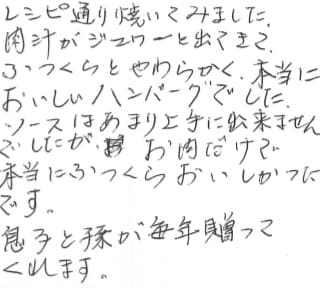 レシピ通り焼いてみました。
肉汁がジュワーと出てきて、
ふっくらとやわらかく、本当に
おいしいハンバーグでした。
ソースはあまり上手に出来ません
でしたが、お肉だけで
本当にふっくらおいしかった
です。
息子と孫が毎年贈って
くれます。